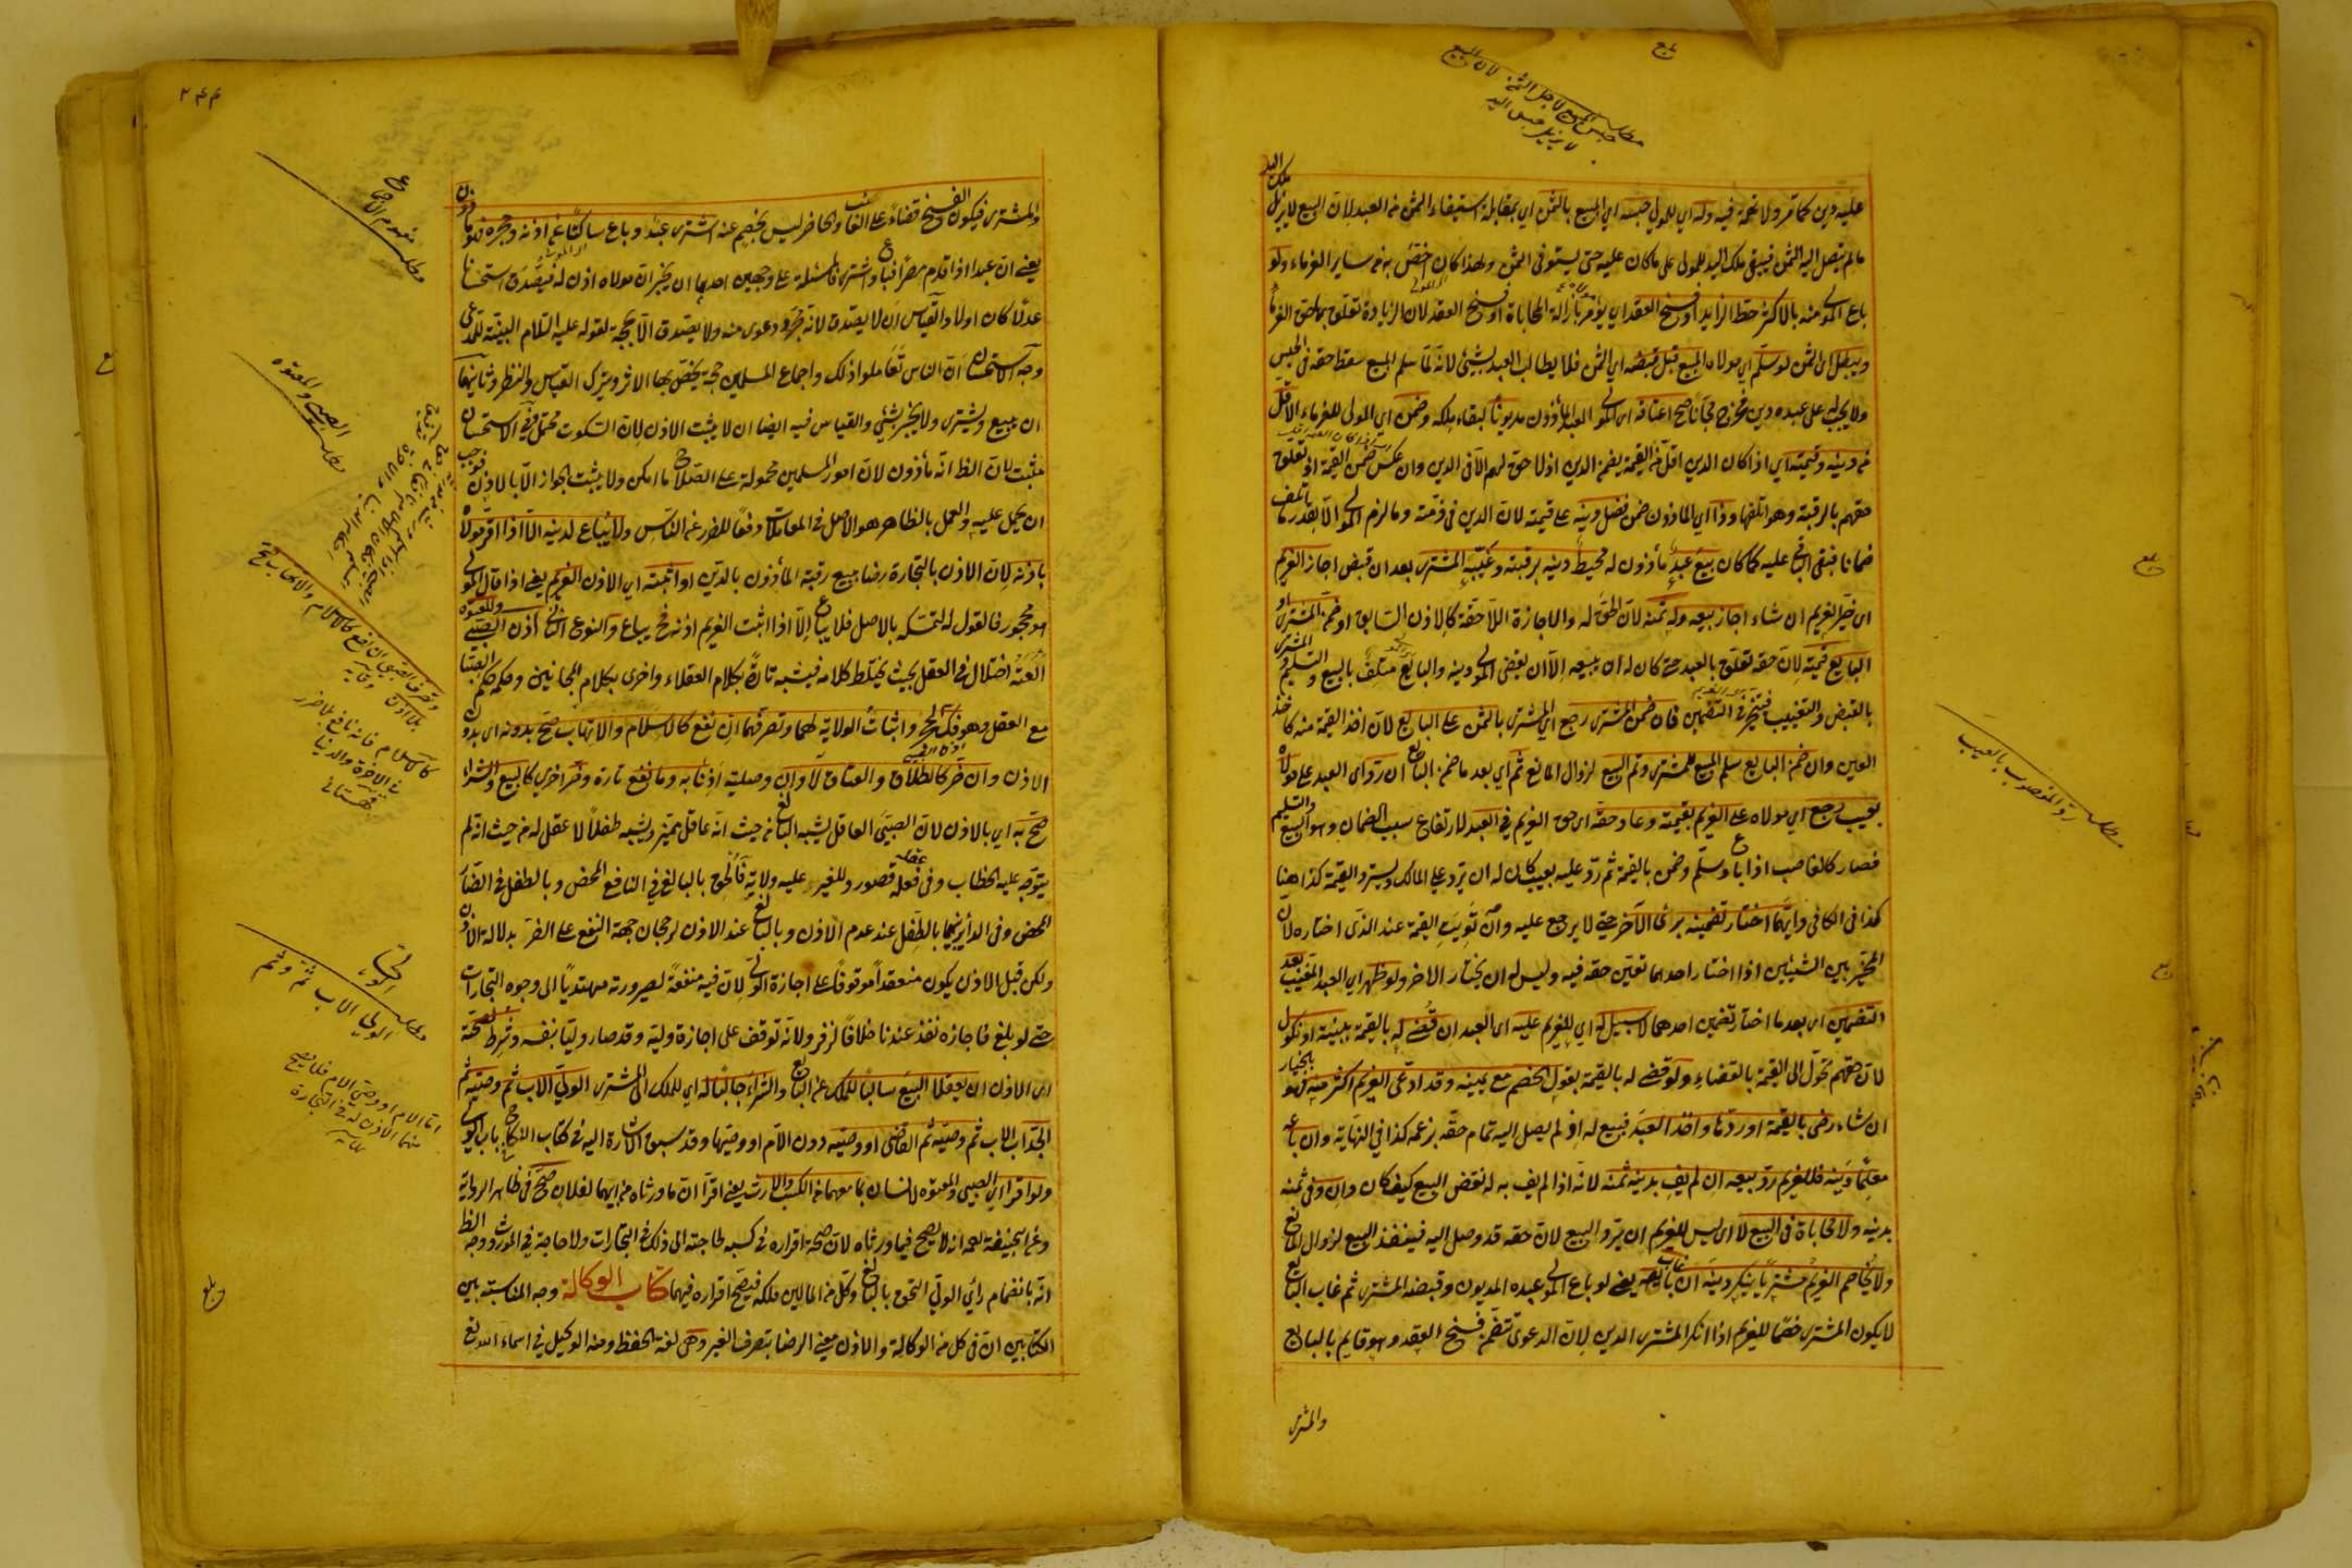 عليه دين كما مر ولا نحجة فيه وله اي للمولى حبسه اي المبيع بالثمن اي بمقابلة استيفاء الثمن من العبد لان البيع لا يزيل
ملك اليد
ما لم يتصل اليه الثمن فيبقى ملك اليد للمولى على ما كان عليه حتى يستوفى الثمن ولهذا كان اخص به من ساير الغرماء ولو
باع المولى منه بالاكثر حط الزايد او فسخ العقد اي يؤمر بازالة المحاباة او فسخ العقد لان الزيادة تعلق بها حق الغرماء
ويبطل اى الثمن لو سلم اي مولاه المبيع قبل قبضه اي الثمن فلا يطالب العبد بشيئ لانه لما سلم المبيع سقط حقه في الحبس
ولا يجب على عبده دين فخرج مجانا صح اعتاقه اى المولى العبد المأذون مديونا لبقاء ملكه وضمن اي المولى للغرماء الاقل
من دينه وقيمته اي اذا كان الدين اقل من القيمة يضمن الدين اذ لا حق لهم الا في الدين وان عكس ضمن القيمة اذ تعلق
حقهم بالرقبة وهو اتلفها ودا اي المأذون ضمن فضل دينه على قيمته لان الدين في ذمته وما لزم المولى الا بقدر ما اتلف
ضمانا فبقى الباقي عليه كما كان بيع عبد مأذون له محيط دينه برقبته وغيبه المشترى بعد ان قبض اجاز الغريم
اى خير الغريم ان شاء اجاز بيعه وله ثمنه لان الحق له والاجازة اللاحقة كالاذن السابق او ضمن المشترى او
البايع قيمته لان حقه تعلق بالعبد حتى كان له ان يبيعه الا ان يقضى المولى دينه والبايع متلف بالبيع والتسليم والمشترى
بالقبض والتغييب فيتخير في التضمين فان ضمن المشترى رجع اي المشترى بالثمن على البايع لان اخذ القيمة منه كاخذ
العين وان ضمن البايع سلم المبيع للمشترى وتم البيع لزوال المانع ثم اي بعد ما ضمن البايع ان رد اى العبد على مولاه
بعيب رجع اي مولاه على الغريم بقيمته وعاد حقه اى حق الغريم في العبد لارتفاع سبب الضمان وهو البيع والتسليم
فصار كالغاصب اذا باع وسلم وضمن بالقيمة ثم رد عليه بعيب كان له ان يرد على المالك ويسترد القيمة كذا هنا
كذا فى الكافى وايهما اختار تضمينه برئ الآخر حتى لا يرجع عليه وان تويت القيمة عند الذى اختاره لان
المخير بين الشيئين اذا اختار احدهما تعين حقه فيه وليس له ان يختار الاخر ولو ظهر اي العبد المغيب بعد
التضمين اى بعد ما اختار تضمين احدهما لا سبيل له اي للغريم عليه اى العبد ان قضى له بالقيمة ببينة او نكول
لان حقهم تحول الى القيمة بالقضاء ولو قضى له بالقيمة بقول الخصم مع يمينه وقد ادعى الغريم اكثر منه فهو بالخيار
ان شاء رضى بالقيمة او ردها واخذ العبد فبيع له اذ لم يصل اليه تمام حقه بزعمه كذا في النهاية وان باعه
معلما دينه فللغريم رد بيعه ان لم يف بدينه ثمنه لانه اذا لم يف به له نقض البيع كيف كان وان وفى ثمنه
بدينه ولا محاباة فى البيع لا اى ليس للغريم ان يرد البيع لان حقه قد وصل اليه فينفذ البيع لزوال المانع
ولا يخاصم الغريم مشتريا ينكر دينه ان غاب بايعه يعنى لو باع المولى عبده المديون وقبضه المشترى ثم غاب البايع
لا يكون المشترى خصما للغريم اذا انكر المشترى الدين لان الدعوى تتضمن فسخ العقد وهو قايم بالبايع
والمشترى
مطلب حبس المبيع لاجل الثمن لان البيع
لا يزيل حبس اليد
بلغ
مطلب رد المغصوب بالعيب
٢٤٤
والمشترى فيكون الفسخ قضاء على الغائب والحاضر ليس بخصم عنه اشترى عبد وباع ساكتا عن اذنه وحجره فهو مأذون
يعنى ان عبدا اذا قدم مصرا فباع واشترى فالمسئلة على وجهين احدهما ان يخبر ان مولاه اذن له فيصدق استحسانا
عدلا كان اولا والقياس ان لا يصدق لانه مجرد دعوى منه ولا يصدق الا بحجة لقوله عليه السلام البينة للمدعى
وجه الاستحسان ان الناس تعاملوا ذلك واجماع المسلمين حجة يخص بها الاثر ويترك القياس والنظر وثانيهما
ان يبيع ويشترى ولا يخبر بشيئ والقياس فيه ايضا ان لا يثبت الاذن لان السكوت محتمل وفى الاستحسان
يثبت لان الظ انه مأذون لان امور المسلمين محمولة على الصلاح ما امكن ولا يثبت الجواز الا بالاذن فوجب
ان يحمل عليه والعمل بالظاهر هو الاصل في المعاملات دفعا للضرر عن الناس ولا يباع لدينه الا اذا اقر مولاه
باذنه لان الاذن بالتجارة رضا ببيع رقبة المأذون بالدين او اثبته اي الاذن الغريم يعنى اذا قال المولى
هو محجور فالقول له لتمسكه بالاصل فلا يباع الا اذا اثبت الغريم اذنه فح يباع والنوع الثانى اذن الصبى والمعتوه
العته اختلال في العقل بحيث يختلط كلامه فيشبه تارة بكلام العقلاء واخرى بكلام المجانين وحكمه حكم الصبيا
مع العقل وهو فك الحجر واثبات الولاية لهما وتصرفهما ان نفع كالاسلام والاتهاب صح بدونه اى بدون
الاذن وان ضر كالطلاق والعتاق لا وان وصلية اذنا به وما نفع تارة وضر اخرى كالبيع والشراء
صح به اي بالاذن لان الصبى العاقل يشبه البالغ من حيث انه عاقل مميز ويشبه طفلا لا عقل له من حيث انه لم
يتوجه عليه الخطاب وفى عقله قصور وللغير عليه ولاية فالحق بالبالغ في النافع المحض وبالطفل في الضار
المحض وفى الدائر بينهما بالطفل عند عدم الاذن وبالبالغ عند الاذن لرجحان جهة النفع على الضرر بدلالة الاذن
ولكن قبل الاذن يكون منعقدا موقوفا على اجازة الولى لان فيه منفعة لصيرورته مهتديا الى وجوه التجارات
حتى لو بلغ فاجازه نفذ عندنا خلافا لزفر ولانه توقف على اجازة وليه وقد صار وليا بنفسه وشرط لصحة
اى الاذن ان يعقلا البيع سالبا للملك عن البايع والشراء جالبا له اي للملك الى المشترى الولى الاب ثم وصيه ثم
الجد اب الاب ثم وصيه ثم القاضى او وصيه دون الام او وصيها وقد سبق الاشارة اليه فى كتاب النكاح باب الولى
ولو اقرا اي الصبى والمعتوه لانسان بما معهما من الكسب والارث يعنى اقرا ان ما ورثاه من ابيهما لفلان صح فى ظاهر الرواية
وعن ابي حنيفة رحمه انه لا يصح فيما ورثاه لان صحة اقراره فى كسبه لحاجته الى ذلك في التجارات ولا حاجة في الموروث ووجه الظ
انه بانضمام رأي الولي التحق بالبالغ وكل من المالين ملكه فيصح اقراره فيهما كتاب الوكالة وجه المناسبة بين
الكتابين ان فى كل من الوكالة والاذن معنى الرضا بتصرف الغير وهى لغة الحفظ ومنه الوكيل في اسماء الله تع
مطلب الصبى والمعتوه
وتصرف الصبى ان نفع كالاسلام والاتهاب صح
بلا اذن وقاية
كالاسلام فانه نافع بلا ضرر
في الاخرة والدنيا
قهستانى
مطلب الولى الاب ثم وثم
اما الام او وصى الام فلا يصح
منهما الاذن له في التجارة
بلغ